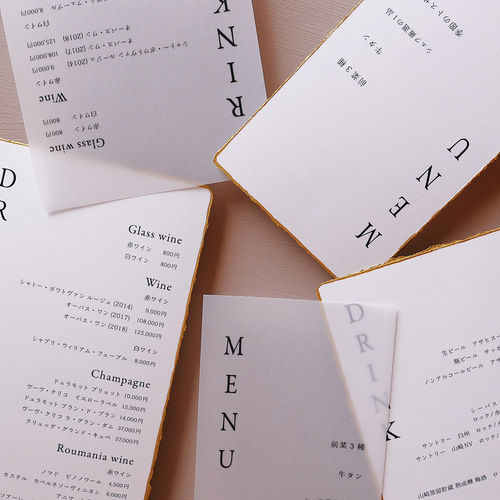 DRINK
Glass wine
赤ワイン 800円
白ワイン 800円
Wine
赤ワイン
シャトー・ポウトヴァン ルージュ (2014) 9,000円
オーパス・ワン (2017) 108,000円
オーパス・ワン (2018) 125,000円
白ワイン
8,000円
MENU
前菜3種
牛タン
シェフ厳選の1品
D
R
Glass wine
赤ワイン 800円
白ワイン 800円
Wine
赤ワイン
シャトー・ポウトヴァン ルージュ (2014) 9,000円
オーパス・ワン (2017) 108,000円
オーパス・ワン (2018) 125,000円
白ワイン
シャブリ・ウィリアム・フェーブル 8,000円
Champagne
デュラモット ブリュット 10,000円
ヴーヴ・クリコ イエローラベル 12,000円
デュラモット ブラン・ド・ブラン 14,000円
ヴーヴ・クリコ ラ・グラン・ダム 37,000円
クリュッグ・グランド・キュベ 57,000円
Roumania wine
赤ワイン
ノマド ピノノワール 4,500円
カステル カベルネソーヴィニヨン 6,000円
MENU
前菜3種
牛タン
DRINK
生ビール アサヒスー
瓶ビール サッポ
ノンアルコールビール アサヒ
シーバス
サントリー 白州 ロック/
サントリー 山崎NV ロック/
山崎蒸留貯蔵 熟成樽 梅酒 ロ